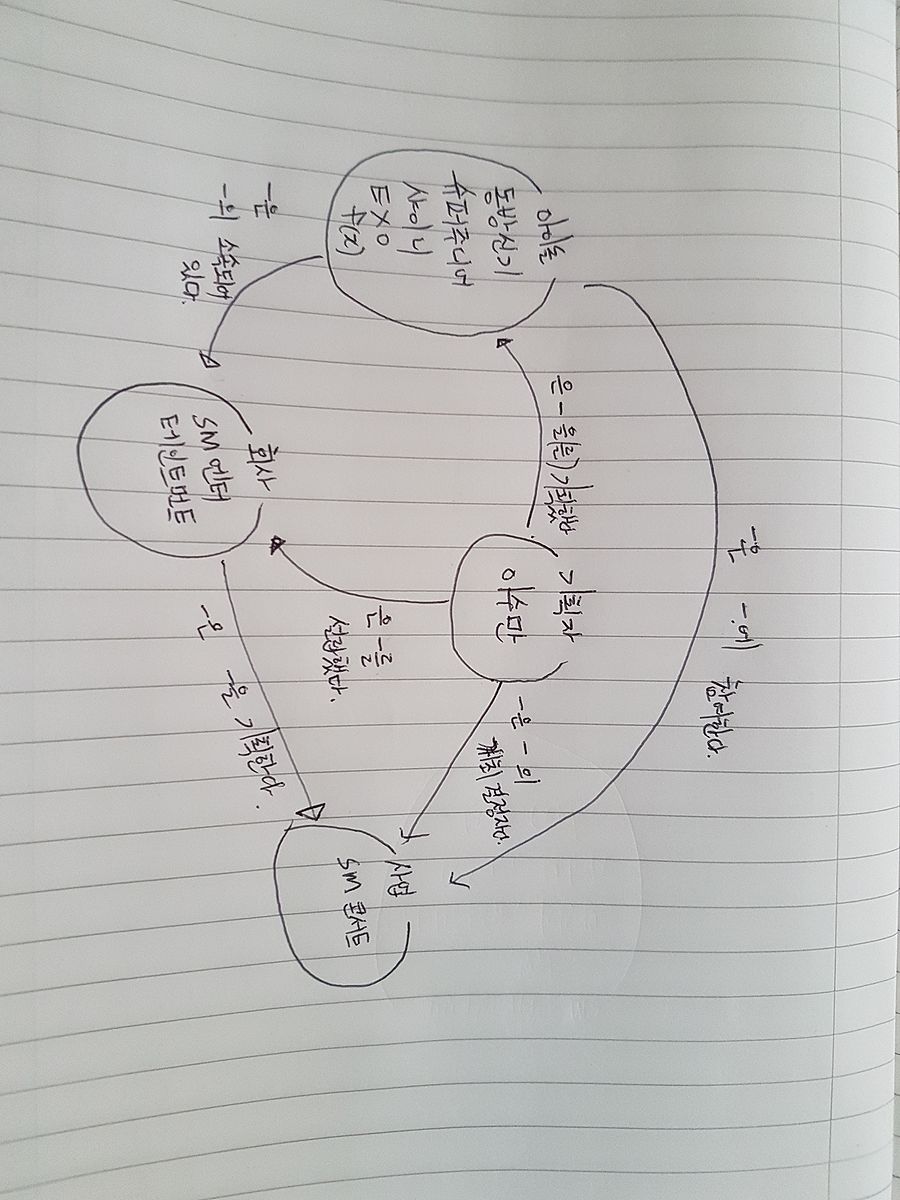 -은 -에 참여한다.
아이돌
동방신기
슈퍼주니어
샤이니
EXO
f(x)
은 -을(를) 기획했다
기획자
이수만
-은 -의
사업
SM 콘서트
-은 -를
설립했다.
-은
-의 소속되어
있다.
회사
SM 엔터
테인트먼트
-은 -을 기획한다.